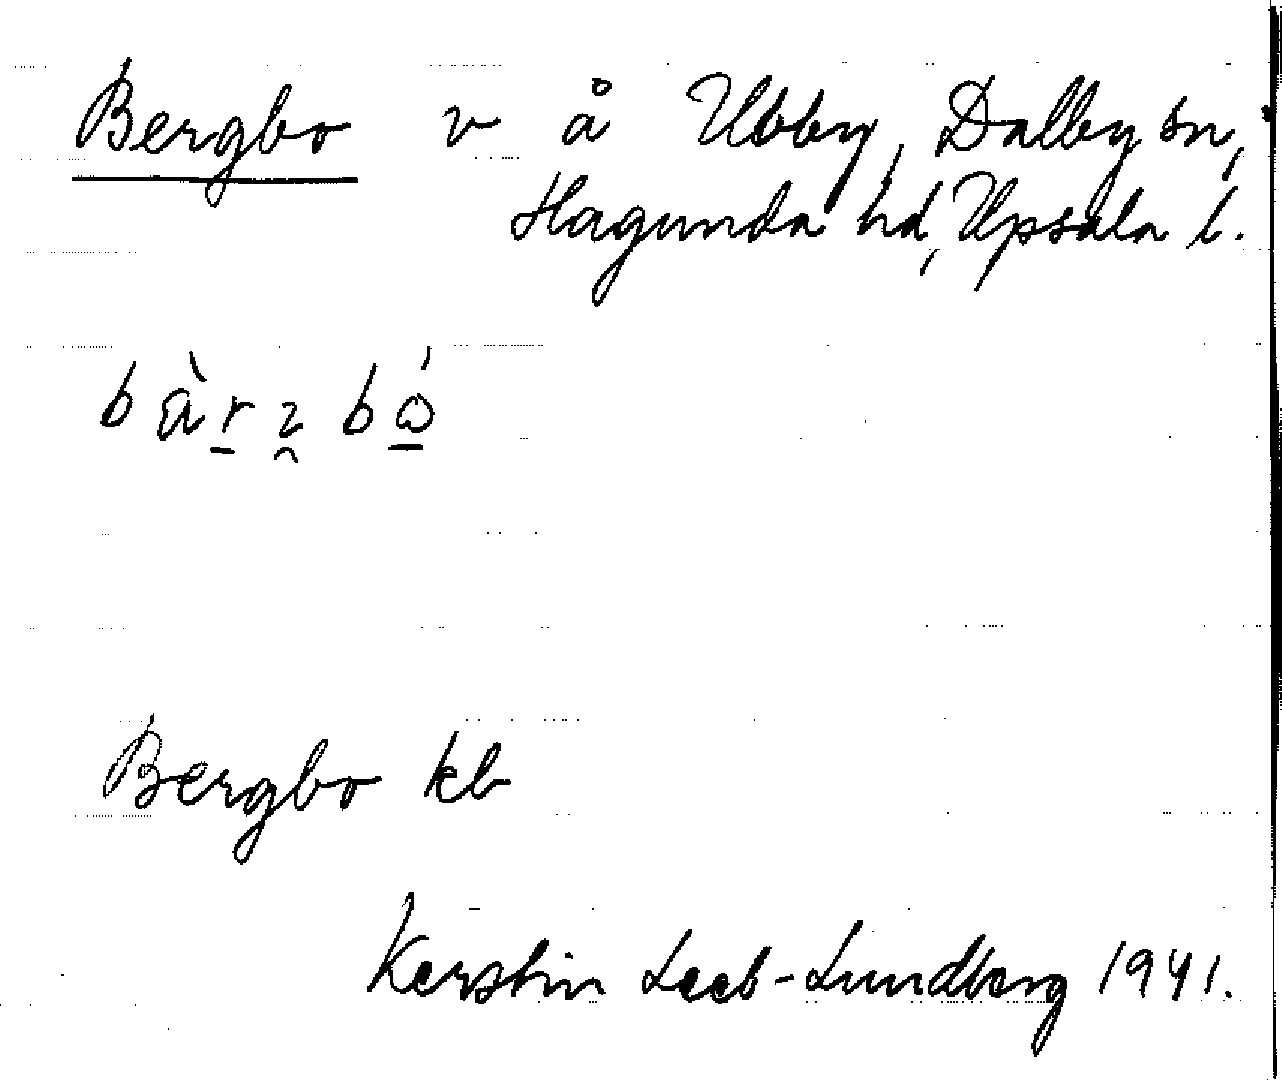 Bergbo v å Ubby, Dalby sn,
Hagunda hd, Upsala l.
Bergbo kb
Kerstin Leeb-Lundberg 1941.